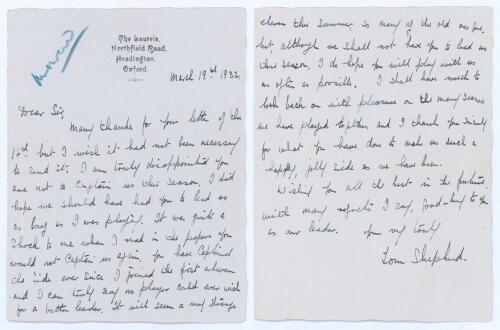 Answered
The Laurels,
Northfield Road,
Headington,
Oxford.
March 19th 1932.
Dear Sir,
Many thanks for your letter of the
but I wish it had not been necessary
to send it. I am truly disappointed you
are not to Captain us this season, I did
hope we should have had you to lead us
as long as I was playing. It was quite a
shock to me when I read in the papers you
would not Captain us again. You have Captained
the side ever since I joined the first eleven
and I can truly say no player could ever wish
for a better leader. It will seem a very strange
eleven this summer, so many of the old ones gone.
but, although we shall not have you to lead us
this season, I do hope you will play with us
as often as possible. I shall have much to
look back on with pleasure on the many seasons
we have played together, and I thank you sincerely
for what you have done to make us such a
happy, jolly side as we have been.
Wishing you all the best in the future,
with many regrets I say, Good-bye to you
as our leader. Yours very truly
Tom Shepherd.